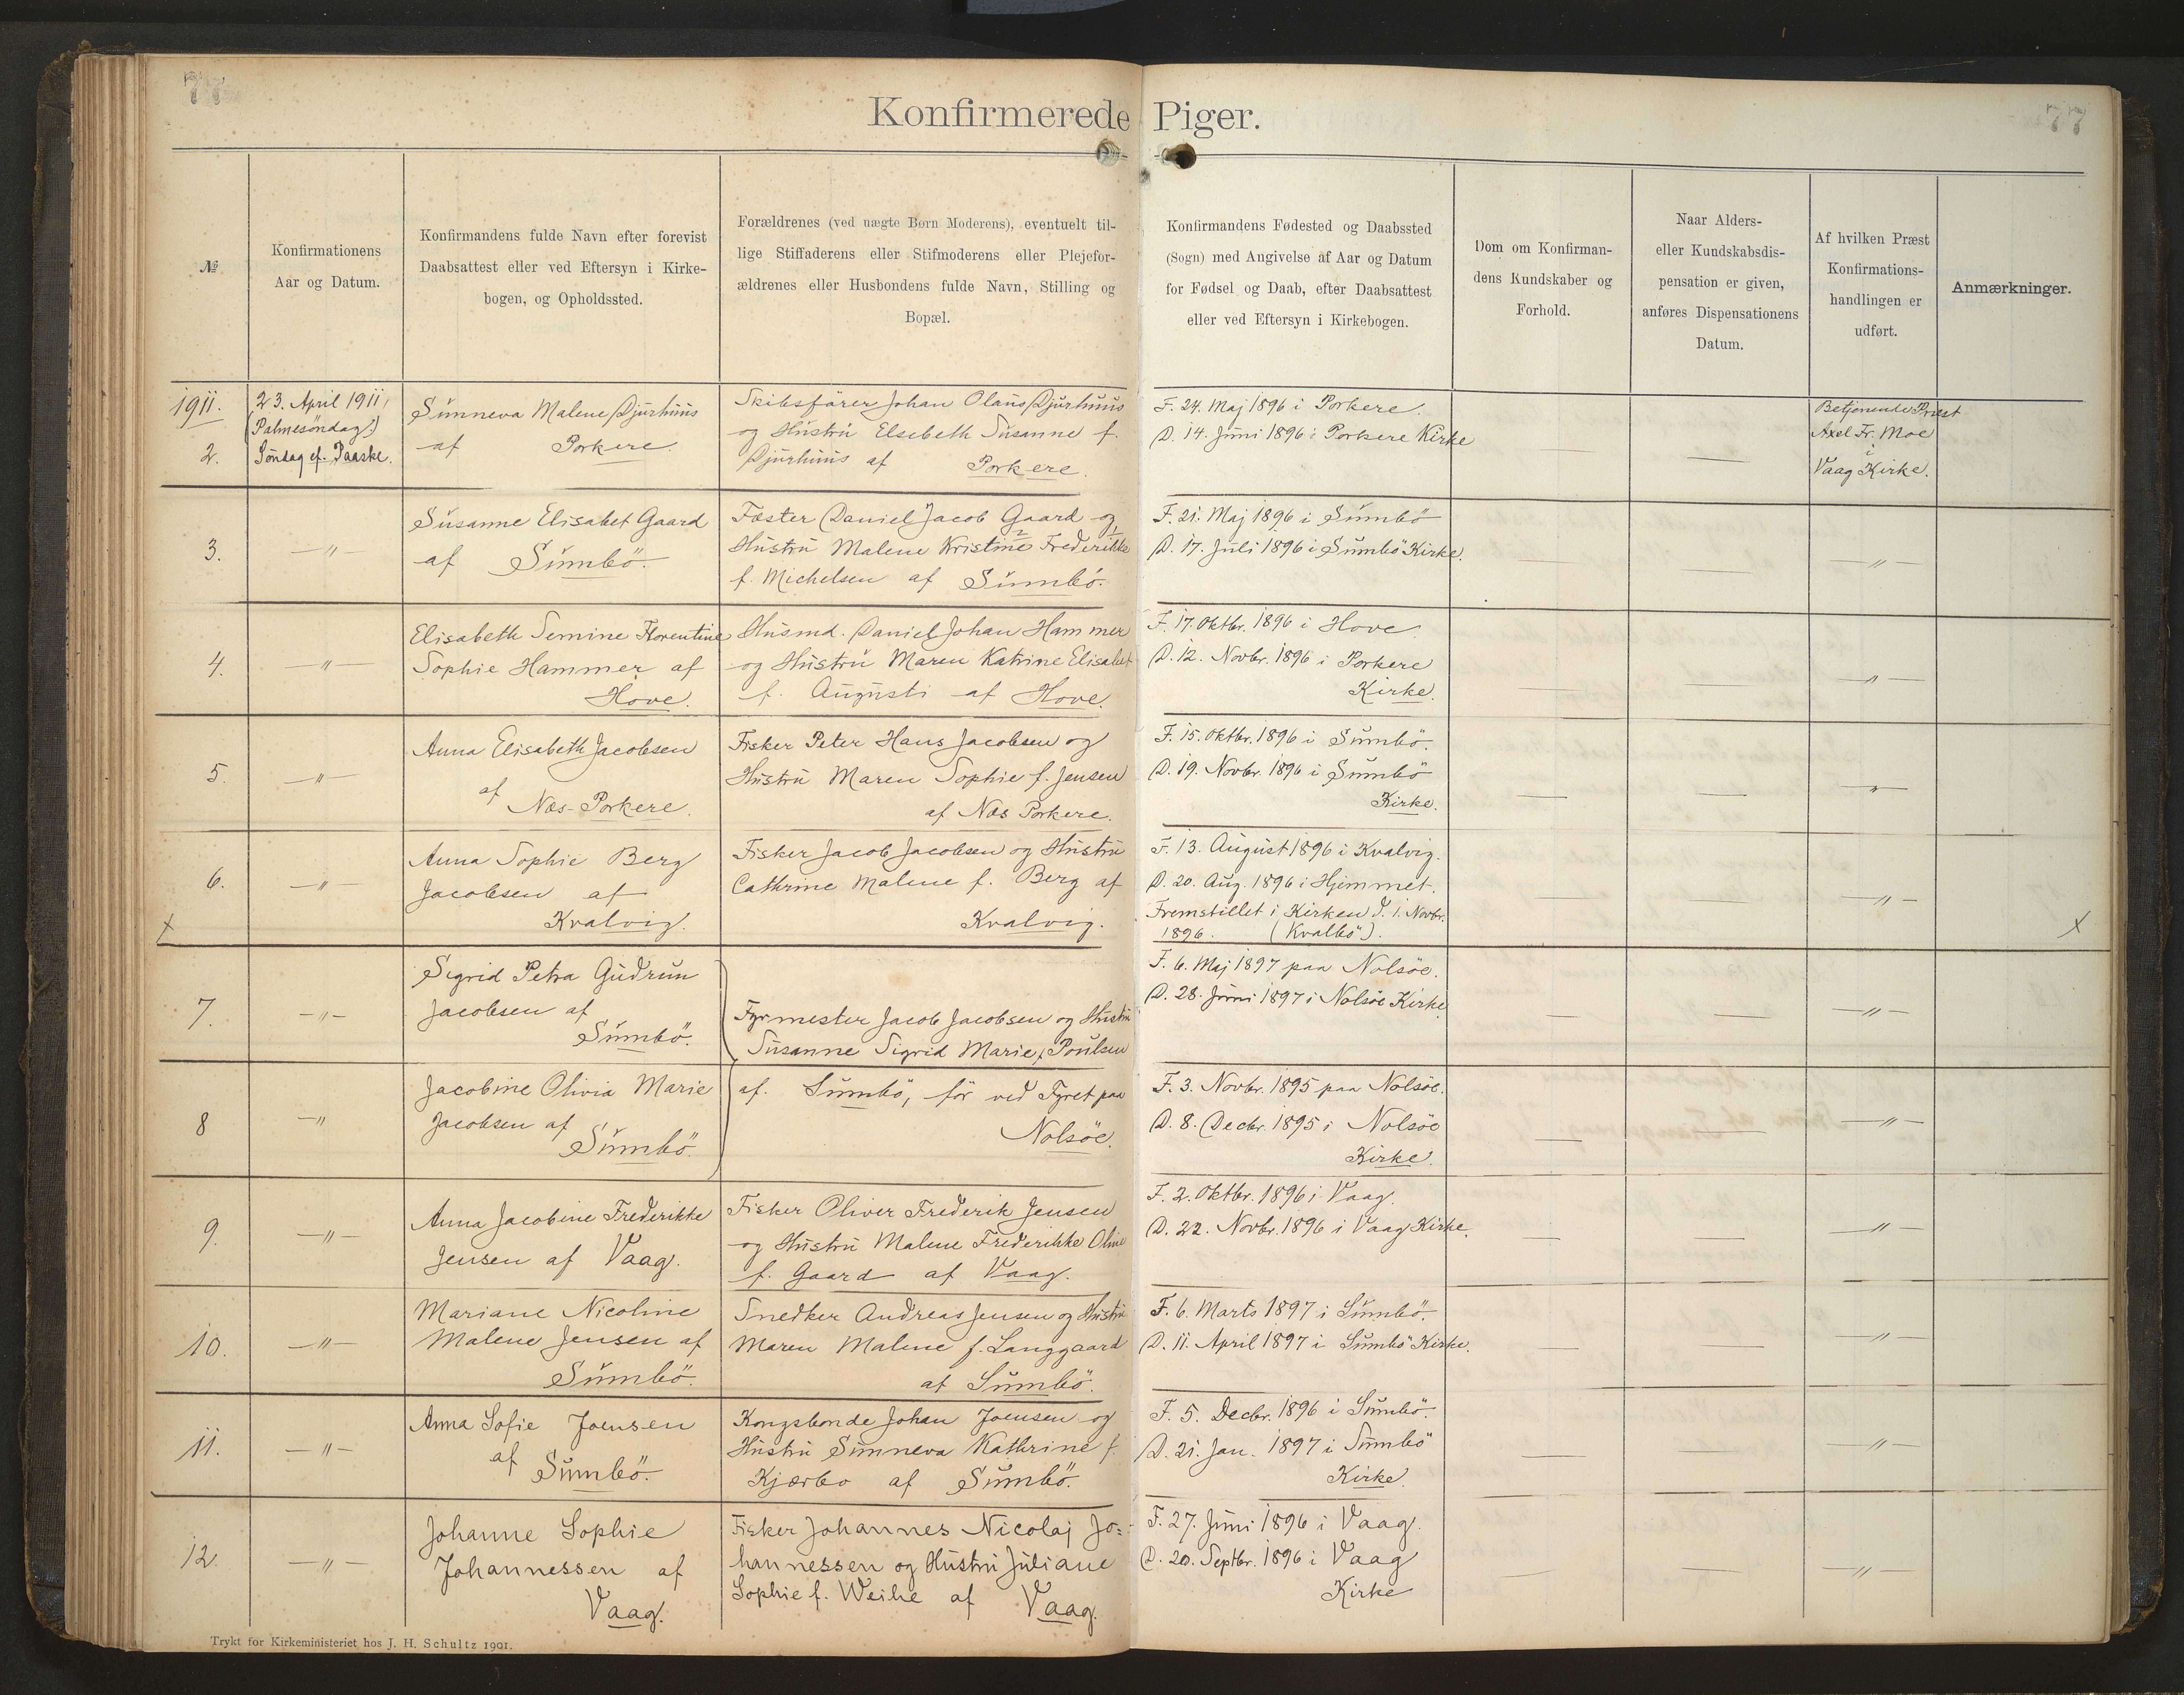 77
77
Konfirmerede Piger.
№
Konfirmationens
Aar og Datum.
Konfirmandens fulde Navn efter forevist
Daabsattest eller ved Eftersyn i Kirke-
bogen, og Opholdssted.
Forældrenes (ved uægte Børn Moderens), eventuelt til-
lige Stiffaderens eller Stifmoderens eller Plejefor-
ældrenes eller Husbondens fulde Navn, Stilling og
Bopæl.
Konfirmandens Fødested og Daabssted
(Sogn) med Angivelse af Aar og Datum
for Fødsel og Daab, efter Daabsattest
eller ved Eftersyn i Kirkebogen.
Dom om Konfirman-
dens Kundskaber og
Forhold.
Naar Alders-
eller Kundskabsdis-
pensation er given,
anføres Dispensationens
Datum.
Af hvilken Præst
Konfirmations-
handlingen er
udført.
Anmærkninger.
1911.
2.
23. April 1911,
(Palmesöndag:)
Söndag ef. Paaske.
Sunneva Malene Djurhuus
af Porkere.
Skibsförer Johan Olaus Djurhuus
og Hustru Elsebeth Susanne f.
Djurhuus af Porkere.
F. 24. Maj 1896 i Porkere.
D. 14. Juni 1896 i Porkere Kirke
—
—
Betjenende Præst
Axel Fr. Moe
i
Vaag Kirke.
3.
—"—
Susanne Elisabet Gaard
af Sumbö.
Fæster Daniel Jacob Gaard og
Hustru Malene Kristine Frederikke
f. Michelsen af Sumbö.
F. 21. Maj 1896 i Sumbö
D. 17. Juli 1896 i Sumbö Kirke.
—
—
—"—
4.
—"—
Elisabeth Semine Florentine
Sophie Hammer af
Hove.
Husmd. Daniel Johan Hammer
og Hustru Maren Katrine Elisabet
f. Augusti af Hove.
F. 17. Oktbr. 1896 i Hove.
D. 12. Novbr. 1896 i Porkere
Kirke.
—
—
—"—
5.
—"—
Anna Elisabeth Jacobsen
af
Næs-Porkere.
Fisker Peter Hans Jacobsen og
Hustru Maren Sophie f. Jensen
af Næs Porkere.
F. 15. Oktbr. 1896 i Sumbö.
D. 19. Novbr. 1896 i Sumbö
Kirke.
—
—
—"—
6.
x
—"—
Anna Sophie Berg
Jacobsen af
Kvalvig.
Fisker Jacob Jacobsen og Hustru
Cathrine Malene f. Berg af
Kvalvig.
F. 13. August 1896 i Kvalvig.
D. 20. Aug. 1896 i Hjemmet.
Fremstillet i Kirken d. 1. Novbr.
1896. (Kvalbö).
—
—
—"—
x
7.
—"—
Sigrid Petra Gudrun
Jacobsen af
Sumbö.
Fyrmester Jacob Jacobsen og Hustru
Susanne Sigrid Marie f. Poulsen
F. 6. Maj 1897 paa Nolsöe.
D. 28. Juni 1897 i Nolsöe Kirke
—
—
—"—
8
—"
Jacobine Olivia Marie
Jacobsen af
Sumbö.
af. Sumbö, för ved Fyret paa
Nolsöe.
F. 3. Novbr. 1895 paa Nolsöe.
D. 8. Decbr. 1895 i Nolsöe
Kirke.
—
—
—"—
9.
—"—
Anna Jacobine Frederikke
Jensen af Vaag.
Fisker Oliver Frederik Jensen
og Hustru Malene Frederikke Oline
f. Gaard af Vaag.
F. 2. Oktbr. 1896 i Vaag.
D. 22. Novbr. 1896 i Vaag Kirke.
—
—
—"—
10.
—"—
Mariane Nicoline
Malene Jensen af
Sumbö.
Snedker Andreas Jensen og Hustru
Maren Malene f. Langgaard
af Sumbö.
F. 6. Marts 1897 i Sumbö.
D. 11. April 1897 i Sumbö Kirke.
—
—
—"—
11.
—"—
Anna Sofie Joensen
af
Sumbö.
Kongsbonde Johan Joensen og
Hustru Sunneva Kathrine f.
Kjærbo af Sumbö.
F. 5. Decbr. 1896 i Sumbö.
D. 21. Jan. 1897 i Sumbö
Kirke.
—
—
—"—
12.
—"—
Johanne Sophie
Johannessen af
Vaag.
Fisker Johannes Nicolaj Jo=
hannessen og Hustru Juliane
Sophie f. Weihe af Vaag.
F. 27. Juni 1896 i Vaag.
D. 20. Septbr. 1896 i Vaag
Kirke
—
—
—"—
Trykt for Kirkeministeriet hos J. H. Schultz 1901.